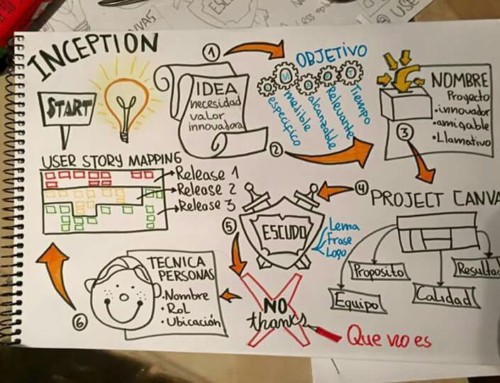 INCEPTION
START
1
IDEA
necesidad
valor
innovadora
OBJETIVO
específico
medible
alcanzable
Relevante
Tiempo
2
NOMBRE
Proyecto
•innovador
•amigable
•Llamativo
3
PROJECT CANVA
Proposito
Equipo
Calidad
Resultad
4
ESCUDO
Lema
Frase
Logo
5
NO
thanks
Que no es
TECNICA
PERSONAS
•Nombre
•Rol
•Ubicación
6
USER STORY MAPPING
Release 1
Release 2
Release 3